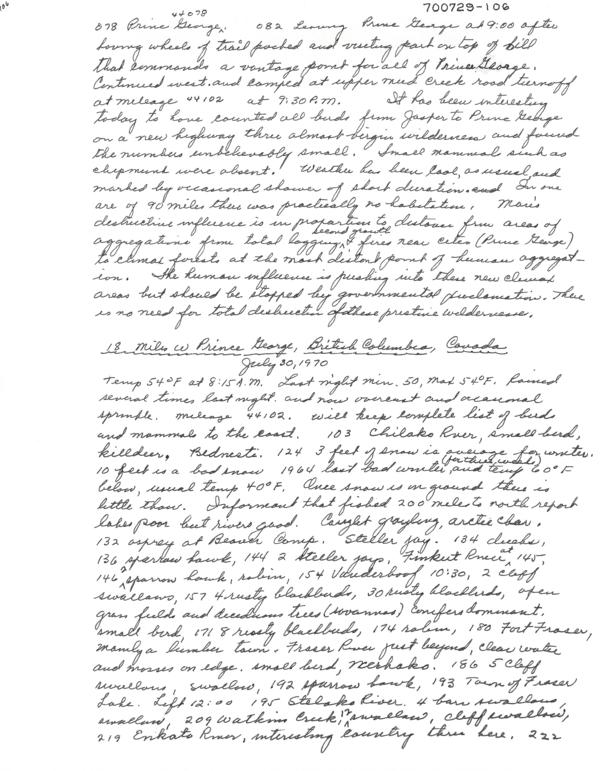 700729-106
44078
078 Prince George. 082 Leaving Prince George at 9:00 after
having wheels of trail packed and visiting part on top of hill
that commands a vantage point for all of Prince George.
Continued west and camped at upper mud Creek road turnoff
at mileage 44102 at 9:30 P.M. It has been interesting
today to have counted all birds from Jasper to Prince George
on a new highway thru almost virgin wilderness and found
the numbers unbelievably small. Small mammals such as
chipmunk were absent. Weather has been cool, as usual, and
marked by occasional shower of short duration. and In one
are of 90 miles there was practically no habitation. Man's
destructive influence is in proportion to distance from areas of
second growth
aggregations from total logging & fires near cities (Prince George)
to climax forests at the most distant point of human aggregat-
ion. The human influence is pushing into these new climax
areas but should be stopped by governmental proclamation. There
is no need for total destruction of these pristine wildernesses.
18 Miles W Prince George, British Columbia, Canada
July 30, 1970
Temp 54°F at 8:15 A.M. Last night min. 50, Max 54°F. Rained
several times last night and now overcast and occasional
sprinkle. mileage 44102. will keep complete list of birds
and mammals to the coast. 103 Chilako River, small bird,
killdeer, Bednesti. 124 3 feet of snow is average for winter.
10 feet is a bad snow 1964 last bad winter, and temp 60°F
below, usual temp 40°F. Once snow is on ground there is
little thaw. Informant that fished 200 miles to north report
lakes poor but rivers good. Caught grayling, arctic char.
132 osprey at Beaver Camp. Steller jay. 134 ducks,
136 sparrow hawk, 144 2 Steller jays, Finkut River at 145,
146 ? sparrow hawk, robin, 154 Vanderhoof 10:30, 2 cliff
swallows, 157 4 rusty blackbirds, 30 rusty blackbirds, open
grass fields and deciduous trees (savannas) conifers dominant.
small bird, 171 8 rusty blackbirds, 174 robin, 180 Fort Fraser,
mainly a lumber town. Fraser River just beyond, clear water
and mosses on edge. small bird, Nechako. 186 5 Cliff
swallows, swallow, 192 sparrow hawk, 193 Town of Fraser
Lake. Left 12:00 195 Stelako River. 4 barn swallows,
swallow, 209 Watkins Creek, 12 swallow, cliff swallow,
219 Enkato River, interesting country thru here. 222